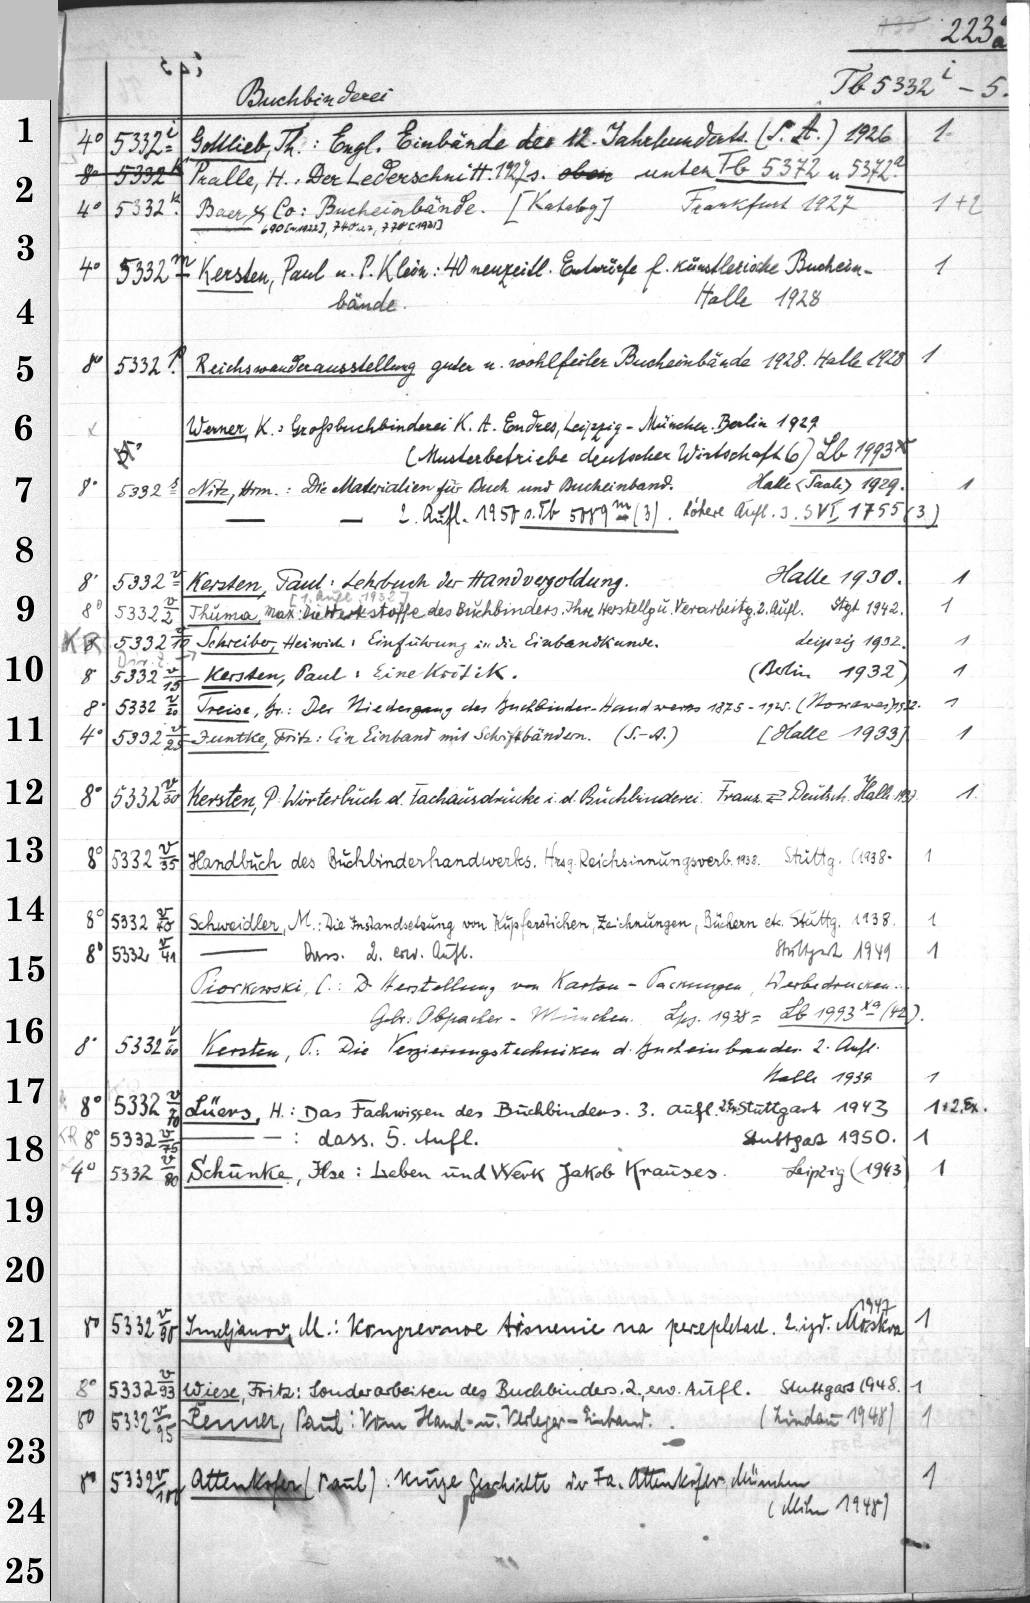 223a
Buchbinderei
Tb 5332 i – 5.
1
4° 5332 i Gottlieb, Th.: Engl. Einbände des 12. Jahrhunderts. (S. A.) 1926 1
8° 5332 k Pralle, H.: Der Lederschnitt. 1927 s. oben unter Tb 5372 u 5372 a
2
4° 5332 k. Baer & Co: Bucheinbände. [Katalog] Frankfurt 1927 1+2
690 [1922], 740, 770 [1931]
3
4° 5332 m Kersten, Paul u. P. Klein: 40 neuzeitl. Entwürfe f. künstlerische Buchein-
4
bände. Halle 1928 1
5
8° 5332 p. Reichswanderausstellung guter u. wohlfeiler Bucheinbände 1928. Halle 1928 1
6
Werner, K.: Großbuchbinderei K. A. Endres, Leipzig – München. Berlin 1927
(Musterbetriebe deutscher Wirtschaft 6) Lb 1993 x
7
8° 5332 s Nitz, Hrm.: Die Materialien für Buch und Bucheinband. Halle <Saale> 1929. 1
— — 2. Aufl. 1950 s. Tb 5089 m (3). höhere Aufl. s. SVI 1755 (3)
8
8° 5332 v Kersten, Paul: Lehrbuch der Handvergoldung. Halle 1930. 1
[1. Aufl. 1932]
9
8° 5332 v/2 Thuma, Max: Die Werkstoffe des Buchbinders. Ihre Herstellg u. Verarbeitg. 2. Aufl. Stgt 1942. 1
KR 5332 v/10 Schreiber, Heinrich: Einführung in die Einbandkunde. Leipzig 1932. 1
10
8 5332 v/15 Kersten, Paul: Eine Kritik. (Berlin 1932) 1
8° 5332 v/20 Treise, Gr.: Der Niedergang des Buchbinder-Handwerks 1875 – 1925. (Nowawes) 1
11
4° 5332 v/25 Juntke, Fritz: Ein Einband mit Schriftbändern. (S.-A.) [Halle 1933] 1
12
8° 5332 v/30 Kersten, P. Wörterbuch d. Fachausdrücke i. d. Buchbinderei. Franz. ⇄ Deutsch. Halle 1937. 1.
13
8° 5332 v/35 Handbuch des Buchbinderhandwerks. Hrsg. Reichsinnungsverb. 1938. Stuttg. (1938- 1
14
8° 5332 v/40 Schweidler, M.: Die Instandsetzung von Kupferstichen, Zeichnungen, Büchern etc. Stuttg. 1938. 1
8° 5332 v/41 — Dass. 2. erw. Aufl. Stuttgart 1949 1
15
Piorkowski, C.: D. Herstellung von Karton – Packungen, Werbedrucken..
Gebr. Obpacher – München. Lpz. 1938 = Lb 1993 xa (42).
16
8° 5332 v/60 Kersten, P.: Die Verzierungstechniken d. Bucheinbandes. 2. Aufl.
Halle 1939 1
17
8° 5332 v/70 Lüers, H.: Das Fachwissen des Buchbinders. 3. Aufl. Stuttgart 1943 1+2.Ex.
18
KR 8° 5332 v/75 — – : dass. 5. Aufl. Stuttgart 1950. 1
4° 5332 v/80 Schunke, Ilse: Leben und Werk Jakob Krauses. Leipzig (1943) 1
19
20
21
8° 5332 v/90 Imeljanov, M.: Kongrevnoe tisnenie na perepletach. 2. izd. Moskva 1947 1
22
8° 5332 v/93 Wiese, Fritz: Sonderarbeiten des Buchbinders. 2., erw. Aufl. Stuttgart 1948. 1
8° 5332 v/95 Renner, Paul: Vom Hand- u. Verleger-Einband. (Lindau 1948) 1
23
8° 5332 v/100 Attenkofer (Paul): Kurze Geschichte der Fa. Attenkofer München 1
24
(Mchn 1948)
25